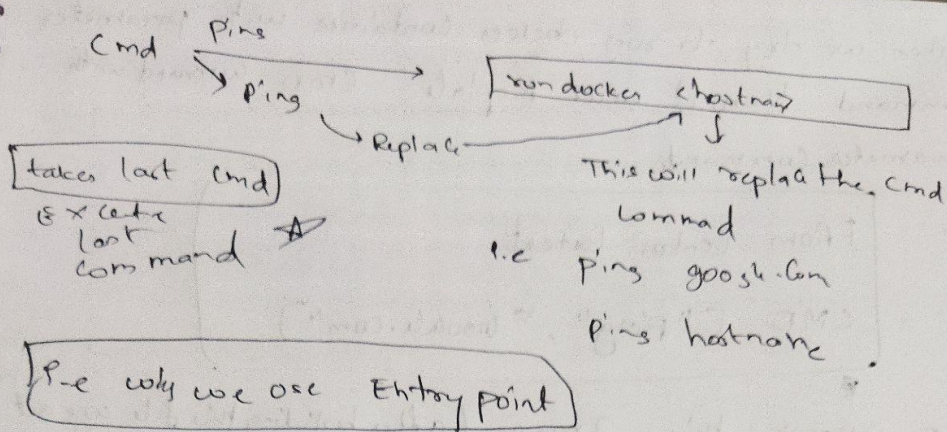 Cmd Ping
Ping
run docker <hostnam>
Replace
takes last cmd
Execute
last
command
This will replace the cmd
Commad
i.e ping google.com
Ping hostname
i.e why we use Entry point